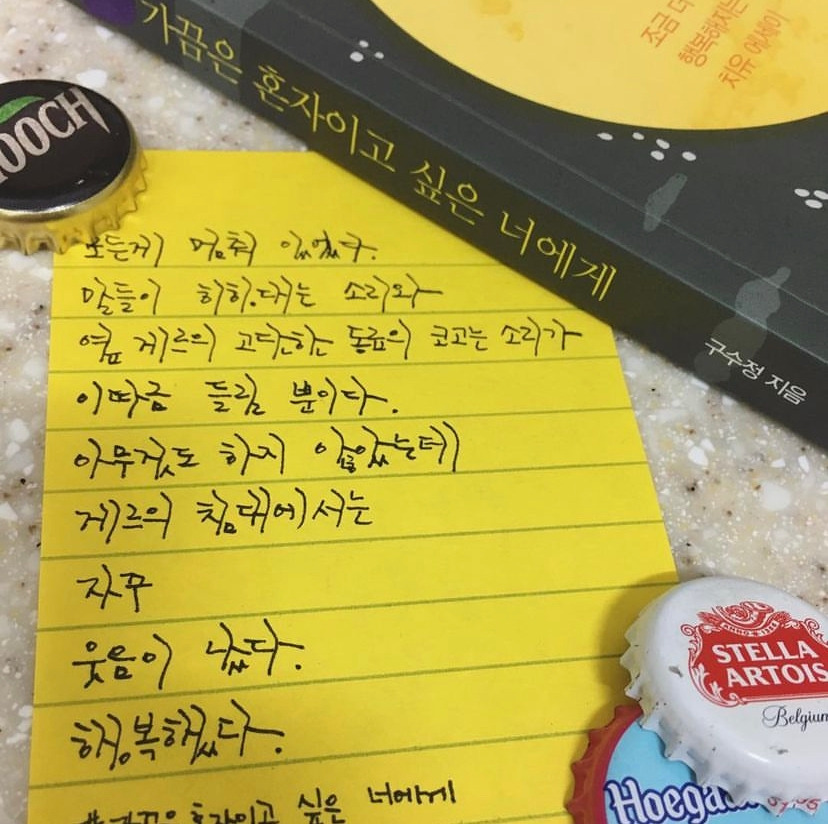 가끔은 혼자이고 싶은 너에게
조금 더
행복해지는
치유 에세이
구수정 지음
HOOCH
모든게 멈춰 있었다.
말들이 히히.대는 소리와
옆 게르의 고단한 동료의 코고는 소리가
이따금 들릴 뿐이다.
아무것도 하지 않았는데
게르의 침대에서는
자꾸
웃음이 났다.
행복했다.
#가끔은 혼자이고 싶은 너에게
ANNO 1366
STELLA
ARTOIS
Belgium
Hoegaa